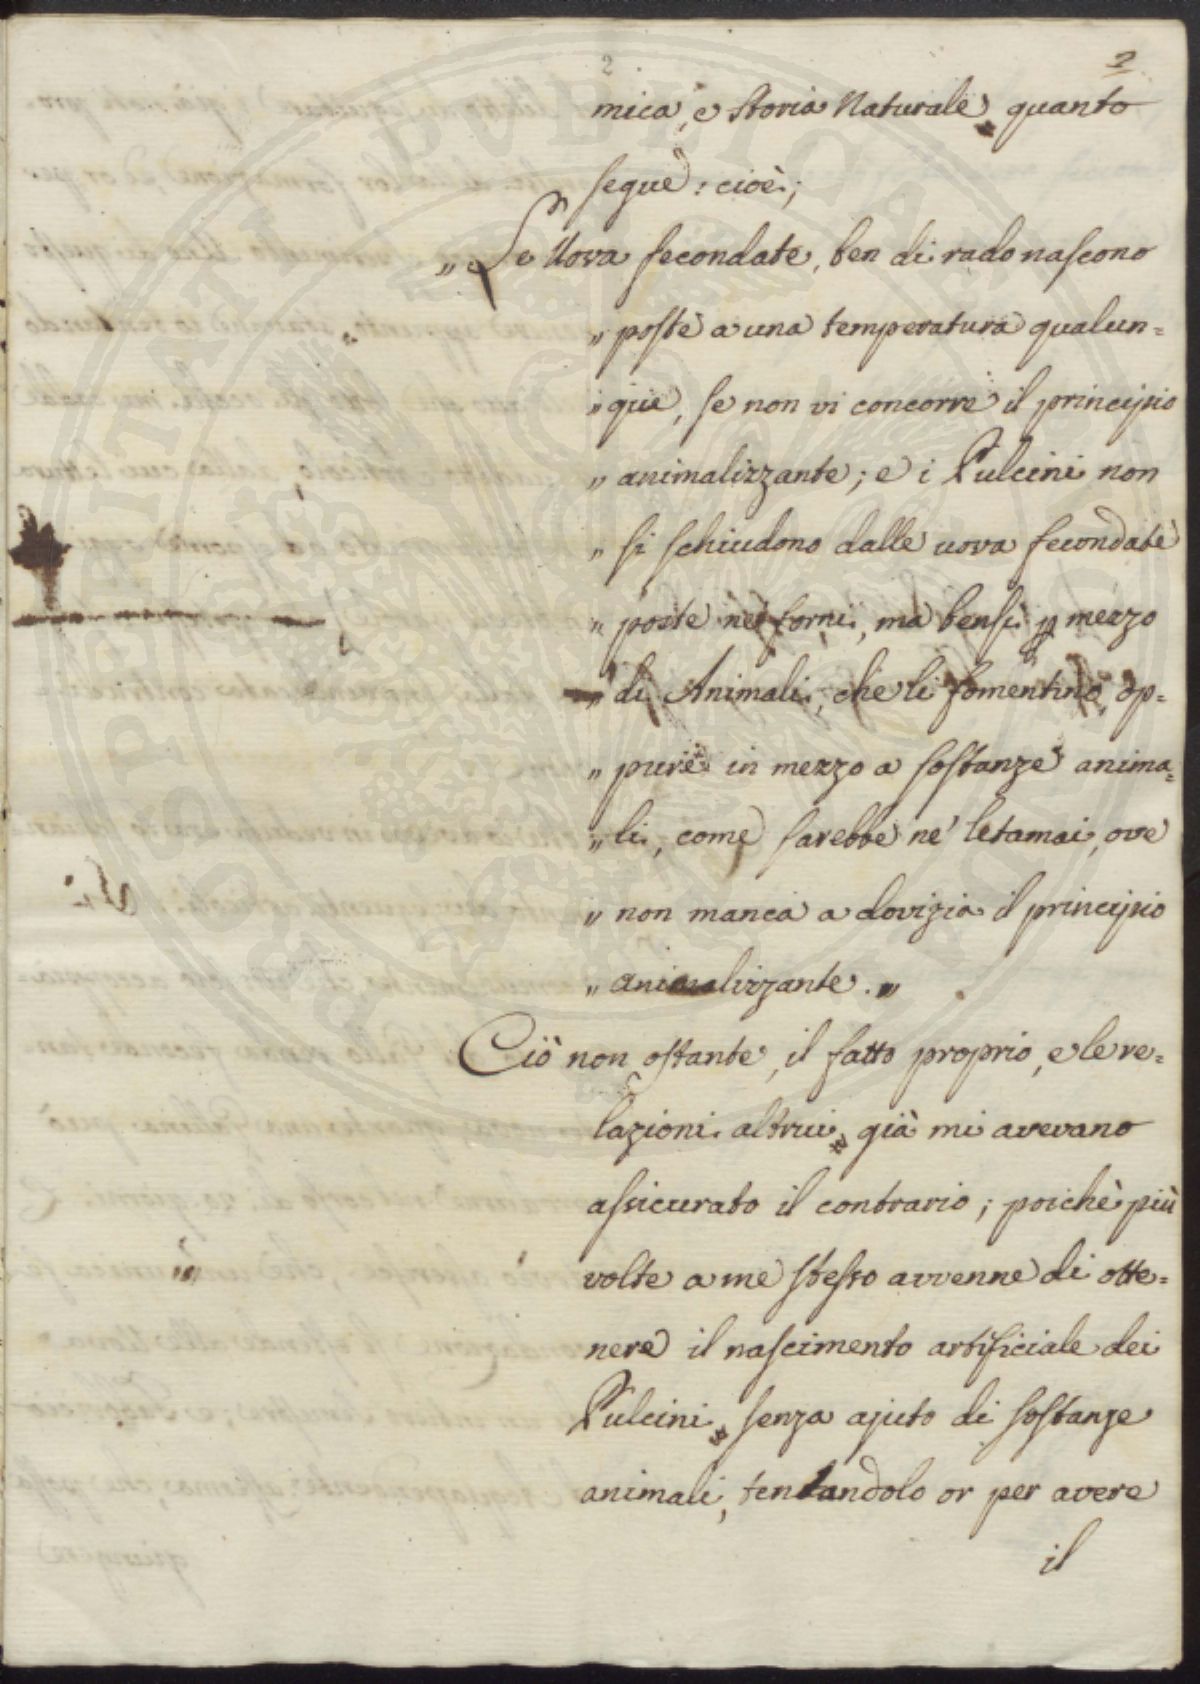 2 2
mica, e Storia Naturale, quanto
segue: cioè;
„ Le Uova fecondate, ben di rado nascono
„ poste a una temperatura qualun=
„ que, se non vi concorre il principio
„ animalizzante; e i Pulcini non
„ si schiudono dalle uova fecondate
„ poste ne' forni, ma bensì p mezzo
„ di Animali, che li fomentino, op=
„ pure in mezzo a sostanze anima=
„ li, come sarebbe ne' letamai, ove
„ non manca a dovizia il principio
„ animalizzante. „
Ciò non ostante, il fatto proprio, e le re=
lazioni altrui, già mi avevano
assicurato il contrario; poichè più
volte a me stesso avvenne di otte=
nere il nascimento artificiale dei
Pulcini, senza ajuto di sostanze
animali, tentandolo or per avere
il